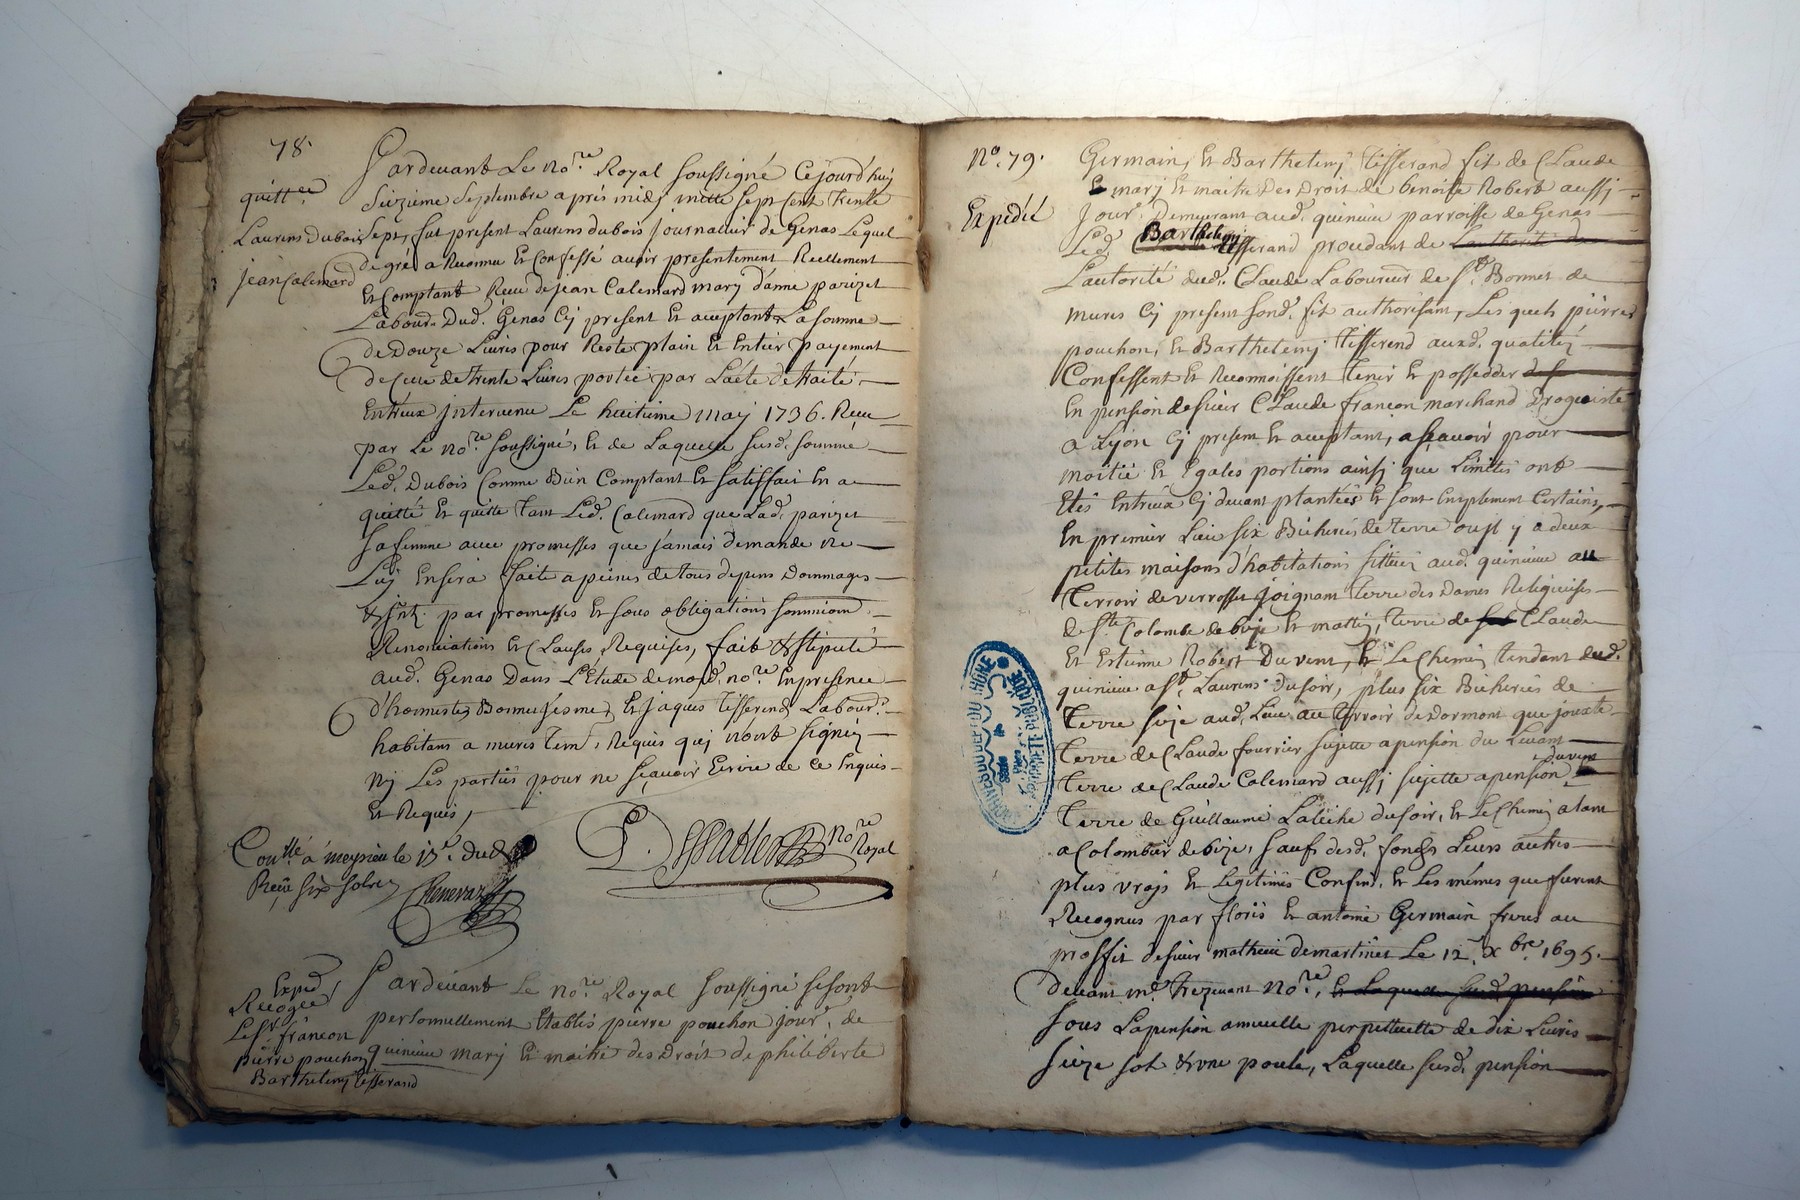 78.
quitt.ce
Laurens dubois
jean Calemard
Pardevant Le no.re Royal soussigné Cejourd'huy
seizieme septembre aprés midy mille sept cent trente
sept, fut present Laurens dubois journalier de Genas Lequel
de gré a Reconnu Et Confessé avoir presentement Reellement
Et Comptant Receu de jean Calemard mary d'anne parizet
Labour.r Dud. Genas Cy present Et acceptant La somme
de Douze Livres pour Reste plain Et Entier payement
de Celle de trente Livres portée par L'acte de traité
Entreux intervenu Le huitieme may 1736. Receu
par Le no.re soussigné, Et de Laquelle susd. somme
Led. Dubois Comme Bien Comptant Et satisfait En a
quitté Et quitte tant Led. Calemard que Lad. parizet
sa femme avec promesses que jamais demande ne
Luy En sera faite a peines de tous depens Dommages
& int. par promesses Et sous obligations soumissions
Renonciations Et Clauses Requises, fait & stipulé
aud. Genas Dans L'Etude de mod. no.re En presence
d'honnestes Bonnes et Jaques tisserand Labour.s
habitans a mures tem. Requis quj n'ont signéz
Nj Les parties pour ne sçavoir Ecrire de Ce Enquis
Et Requis,
Con.llé a meysieu le 17.e dud.
Receu six sols
Renevaz
P. no.re Royal
Exped.
Recogce
Le Sr. françon
pierre pouchon
Barthelemy tisserand
Pardevant Le no.re Royal soussigné se sont
personnellement Etablis pierre pouchon jour.r de
quinieux mary Et maitre des Droit de philiberte
No. 79.
Expedié
Germain, Et Barthelemj tisserand fit de Claude
mary Et maitre Des Droit de benoite Robert aussj
Jour.r Demeurant aud. quinieux parroisse de Genas
Led. Barthelemj tisserand procedant de Lauthorité de
L'autorité dud. Claude Laboureur de St. Bonnet de
mures Cj present sond. fit authorisant, Les quels pierre
pouchon, Et Barthelemj tisserand auxd. qualitéz
Confessent Et Reconnoissent tenir Et possedder
En pension de sieur Claude françon marchand Drogviste
a Lyon Cj present Et acceptant, a sçavoir pour
moitié Et Egales portions ainsj que Limites ont
Etés Entreux Cj devant plantéés Et sont simplement Certains,
En premier Lieu six Bicherés de terre ou il y a deux
petites maisons d'habitations sittuéz aud. quinieux au
terroir de verrosses joignant terre des Dames Religieuses
de Ste. Colombe de bize Et matin, terre de Claude
Et Estienne Robert Du vent, Et Le Chemin tendant dud.
quinieux a St. Laurens du soir, plus six Bicherées de
terre size aud. Lieu au terroir de Dormont que jouxte
terre de Claude fournier sujette a pension du Levant
terre de Claude Calemard aussj sujette a pension du vent
terre de Guillaume Laleche du soir, Et Le Chemin alant
a Colombier de bize, sauf desd. fonds Leurs autres
plus vrays Et Legitimes Confins, Et Les mêmes que furent
Recognus par floris Et antoine Germain freres au
proffit de sieur mathieu demartinet Le 12. Xbre. 1695.
devant me. trezevant No.re, Et Laquelle susd. pension
sous La pension annuelle perpettuelle de dix Livres
seize sol & une poule, Laquelle susd. pension